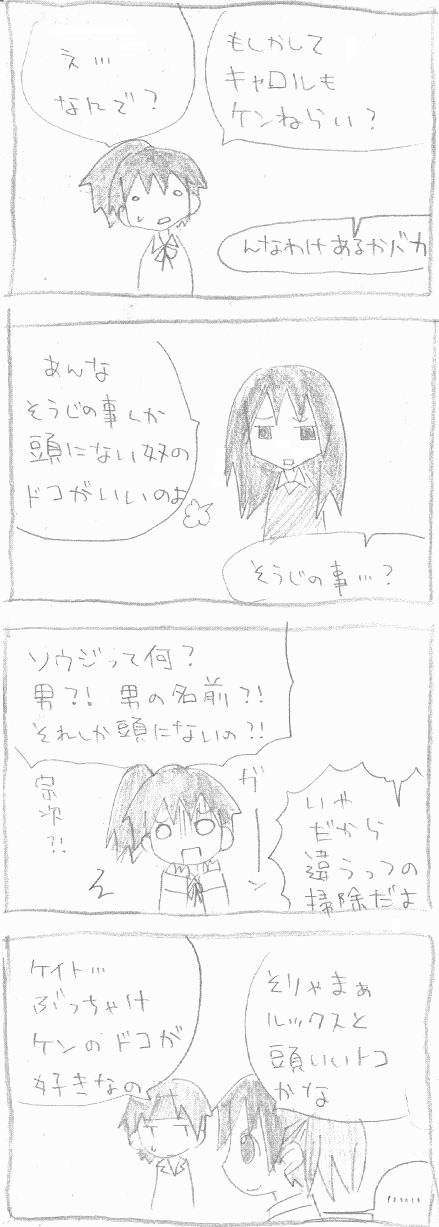 もしかして
キャロルも
ケンねらい?
え…
なんで?
んなわけあるかバカ
あんな
そうじの事しか
頭にない奴の
ドコがいいのよ
そうじの事…?
ソウジって何?
男?! 男の名前?!
それしか頭にないの?!
宗次?!
ガーン
いや
だから
違うっつの
掃除だよ
そりゃまぁ
ルックスと
頭いいトコ
かな
ケイト…
ぶっちゃけ
ケンのドコが
好きなの